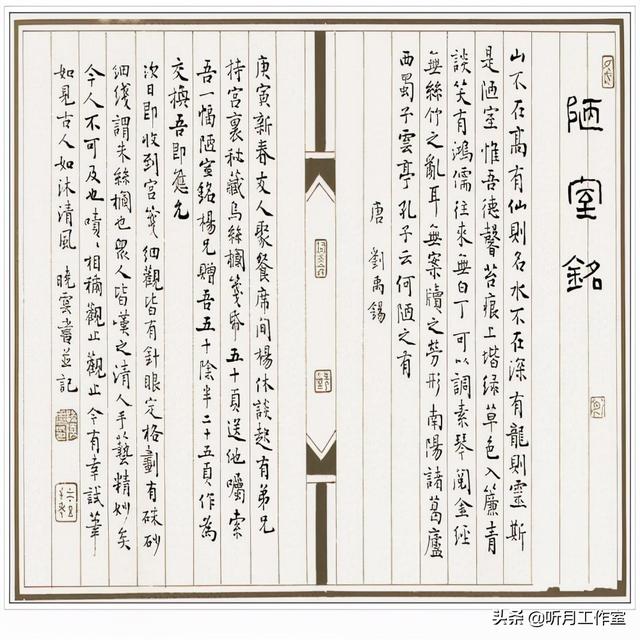 陋室銘
山不在高有仙則名水不在深有龍則靈斯
是陋室惟吾德馨苔痕上堦緑草色入簾青
談笑有鴻儒往來無白丁可以調素琴閱金經
無絲竹之亂耳無案牘之勞形南陽諸葛廬
西蜀子雲亭孔子云何陋之有
唐 劉禹錫
庚寅新春友人聚餐席間楊休談起有弟兄
持宮裏秘藏烏絲欄箋紙五十頁送他囑索
吾一幅陋室銘楊兄贈吾五十陰半二十五頁作為
交換吾即應允
次日即收到宮箋細觀皆有針眼定格劃有硃砂
細綫謂朱絲欄也眾人皆嘆之清人手藝精妙矣
今人不可及也嘖〻相稱觀止觀止今有幸試筆
如見古人如沐清風 曉雲書並記
头条 @听月工作室